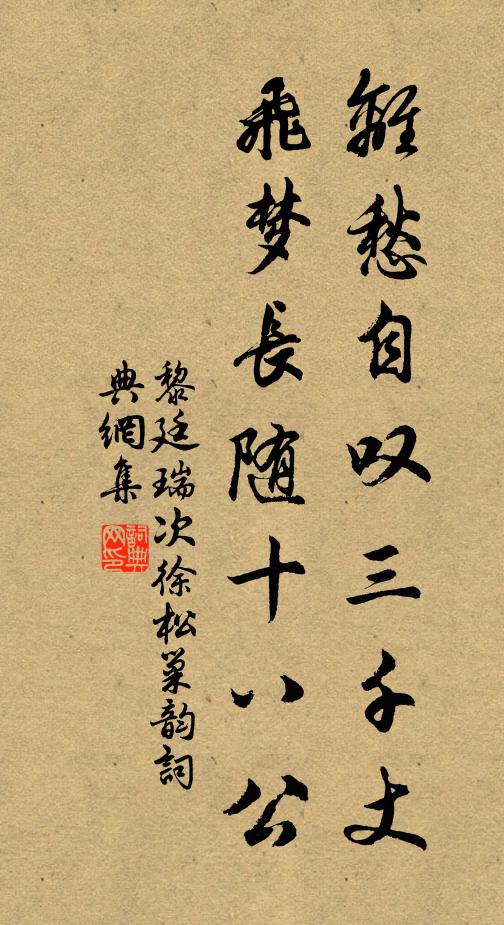 離愁自叹三千丈
飛梦長随十八公
黎廷瑞次徐松巢韵詞
典網集
詞典
网印